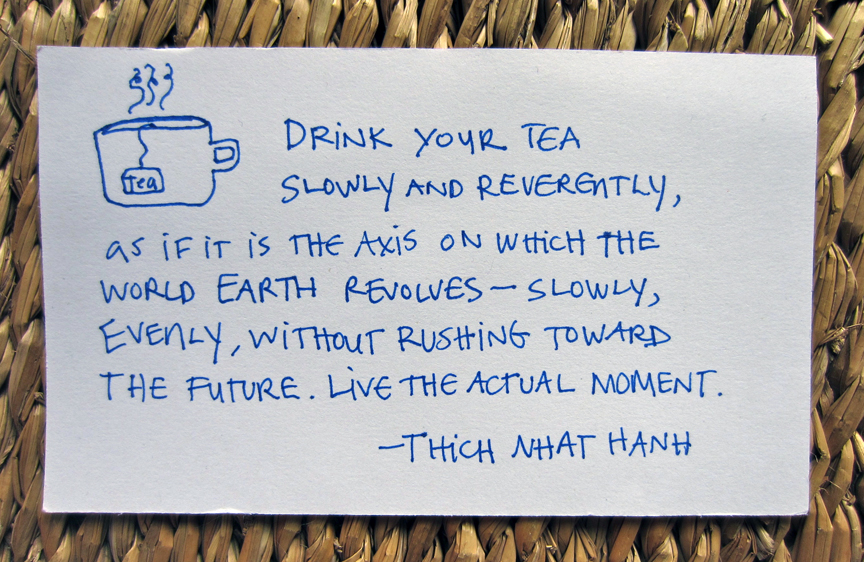 Tea
DRiNK YOUR TEA
SLOWLY AND REVERENTLY,
as iF iT iS THE AXiS ON WHiCH THE
WORLD EARTH REVOLVES – SLOWLY,
EVENLY, WiTHOUT RUSHiNG TOWARD
THE FUTURE. LiVE THE ACTUAL MOMENT.
–THiCH NHAT HANH